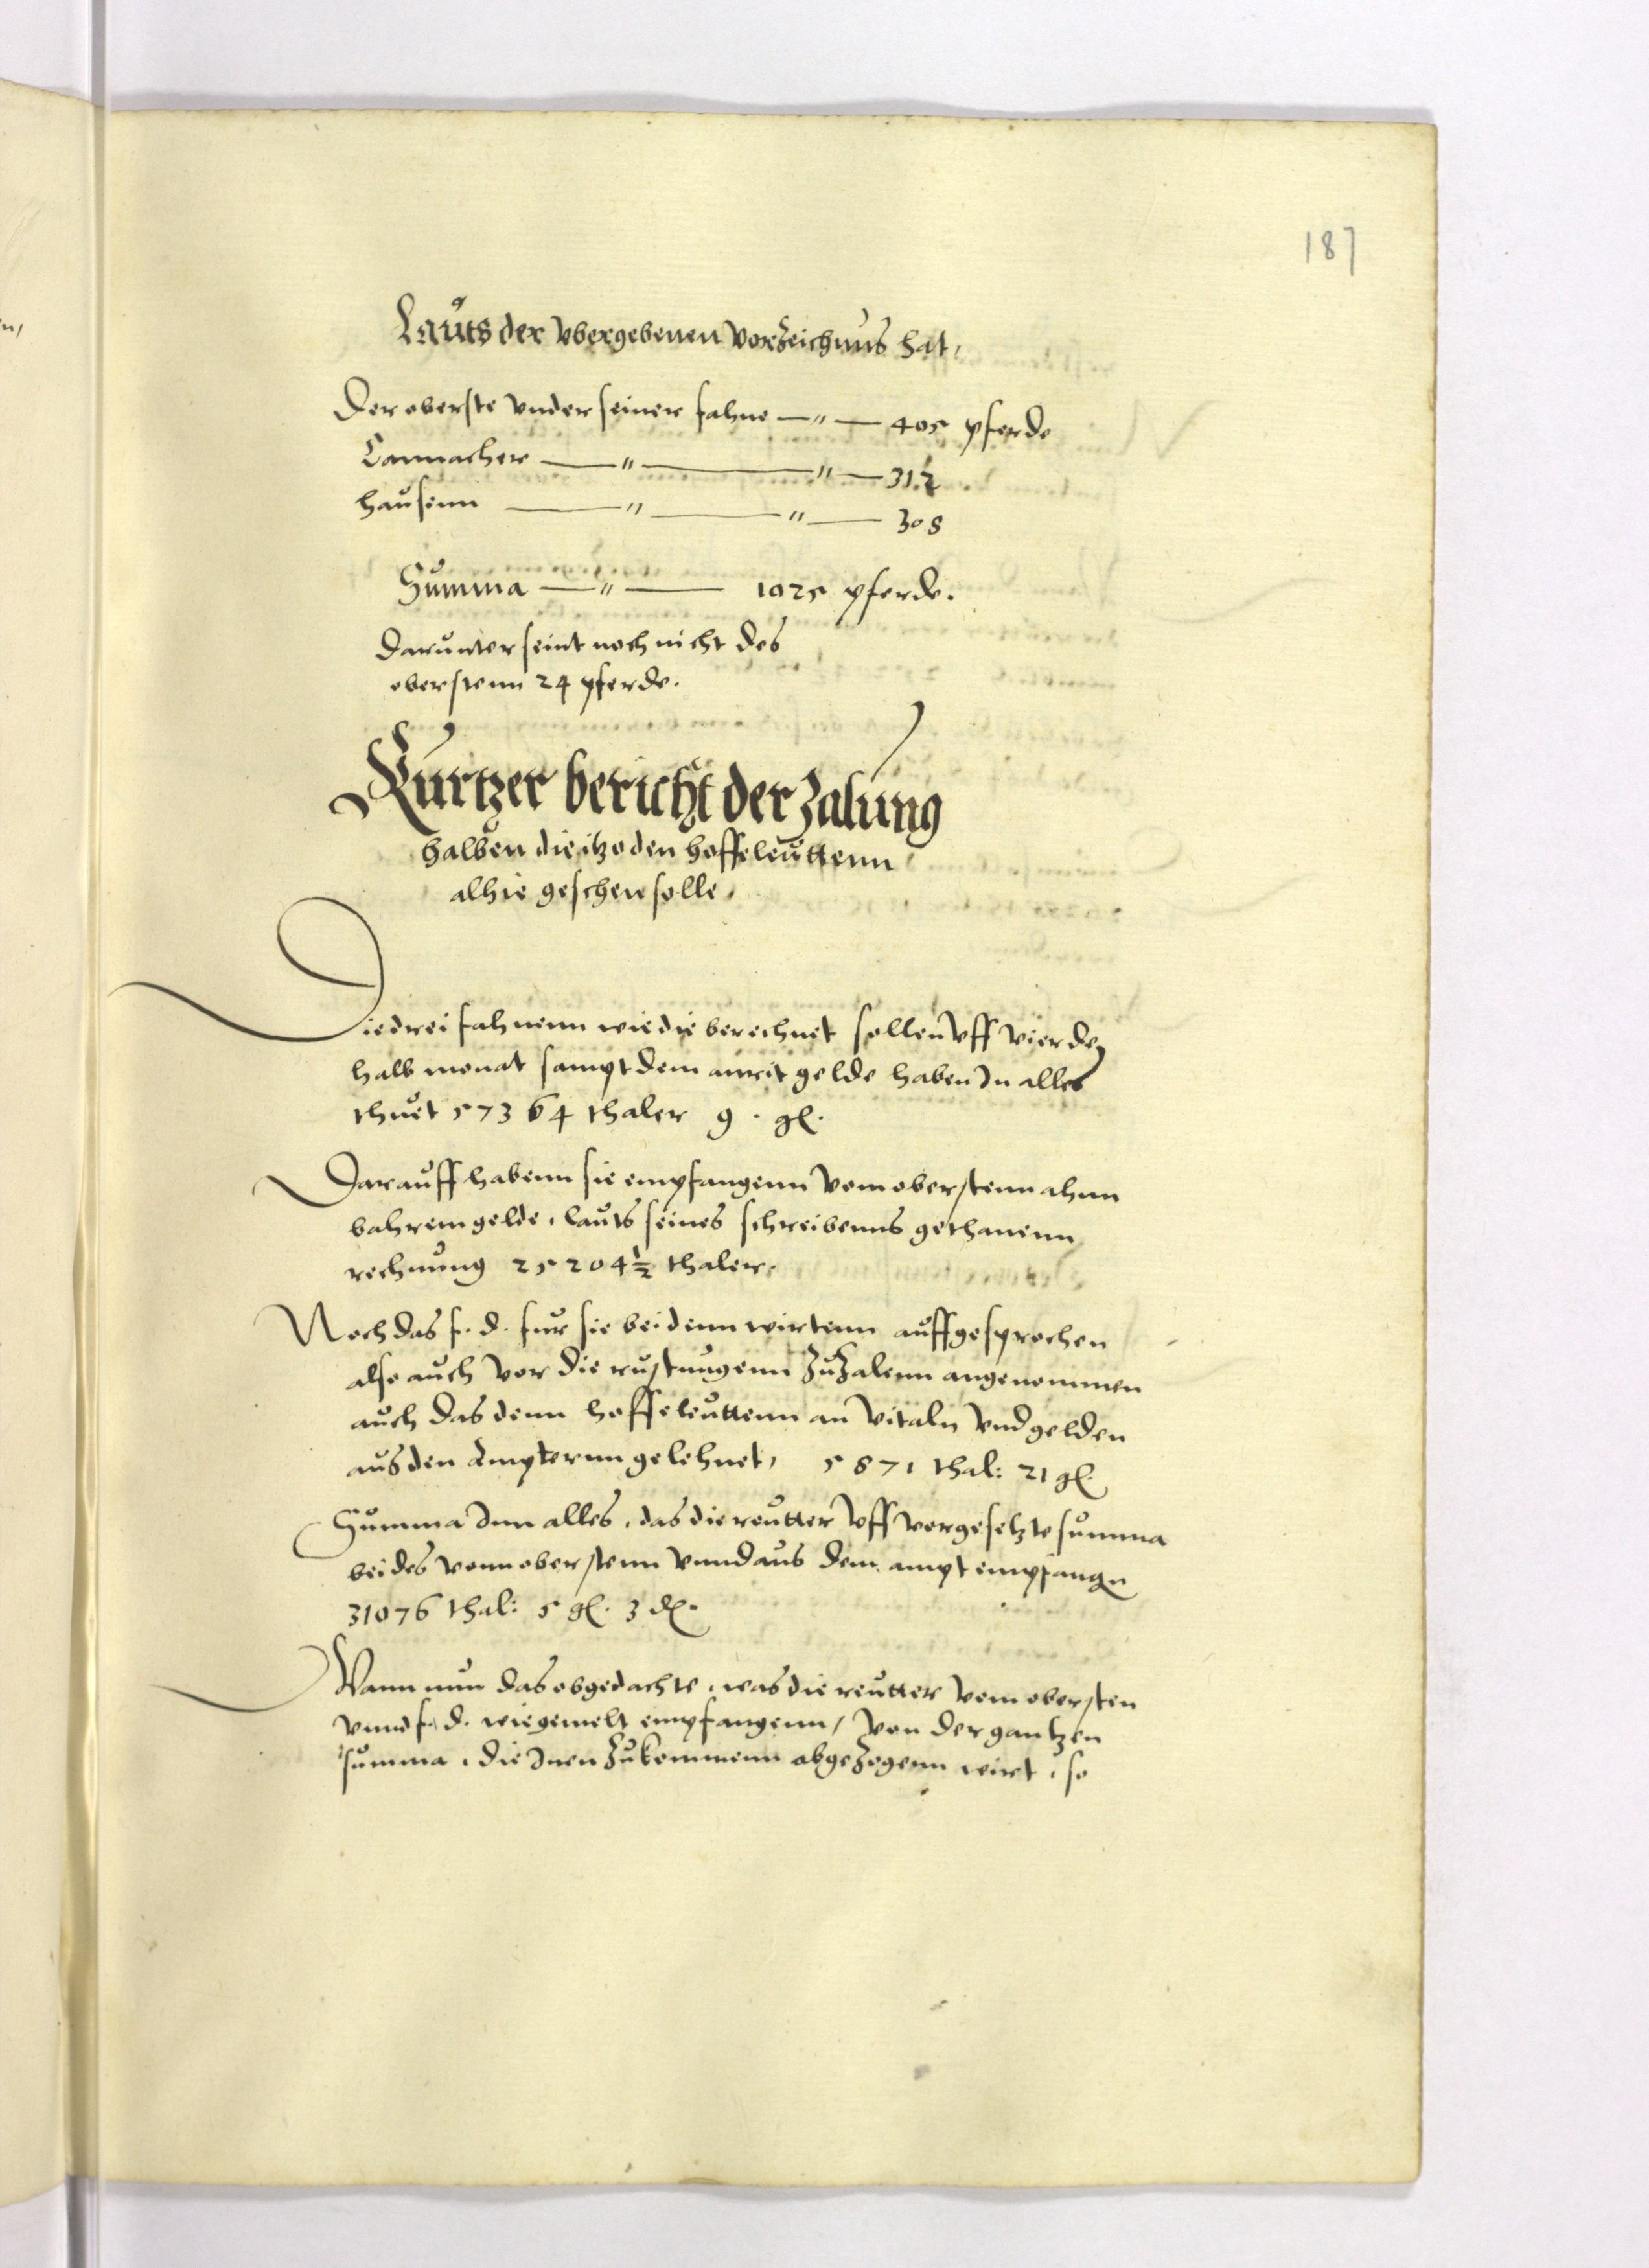 187
Lauts der vbergebenen vorzeichnus hat,
Der oberste vnder seiner fahne —〃— 405 pferde
Cannacher —〃——〃— 312
hausenn —〃——〃— 308
Summa —〃— 1025 pferde.
Darunter seint noch nicht des
oberstenn 24 pferde.
Kurtzer bericht der Zalung
halben die itzo den hoffeleuttenn
alhie geschen solle.
Die drei fahnenn wie die berechnet sollen vff vierde
halb monat sampt dem anrit gelde haben In alles
thuet 57364 thaler 9 . gl.
Darauff habenn sie empfangenn vom oberstenn ahnn
bahrem gelde, lauts seines schreibenns gethanenn
rechnung 25204½ thaler.
Noch das f. d. fur sie bei denn wirtenn auffgesprochen
also auch vor die rustungenn zu Zalenn angenommen
auch das denn hoffeleuttenn an vitaln vnd gelden
aus den Empternn gelehnet, 5871 thal: 21 gl.
Summa Inn alles, das die reutter vff vorgesetzte summa
beides vonn oberstenn vnnd aus dem ampt empfangn
31076 thal: 5 gl. 3 d.
Wann nun das obgedachte, was die reutter vom obersten
vnnd f. d. wie gemelt empfangenn, von der gantzen
summa, die Inen zukommenn abgezogenn wirt, so